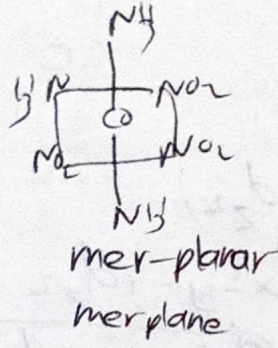 NH3
H3N NO2
Co
NO2 NO2
NH3
mer-planar
merplane